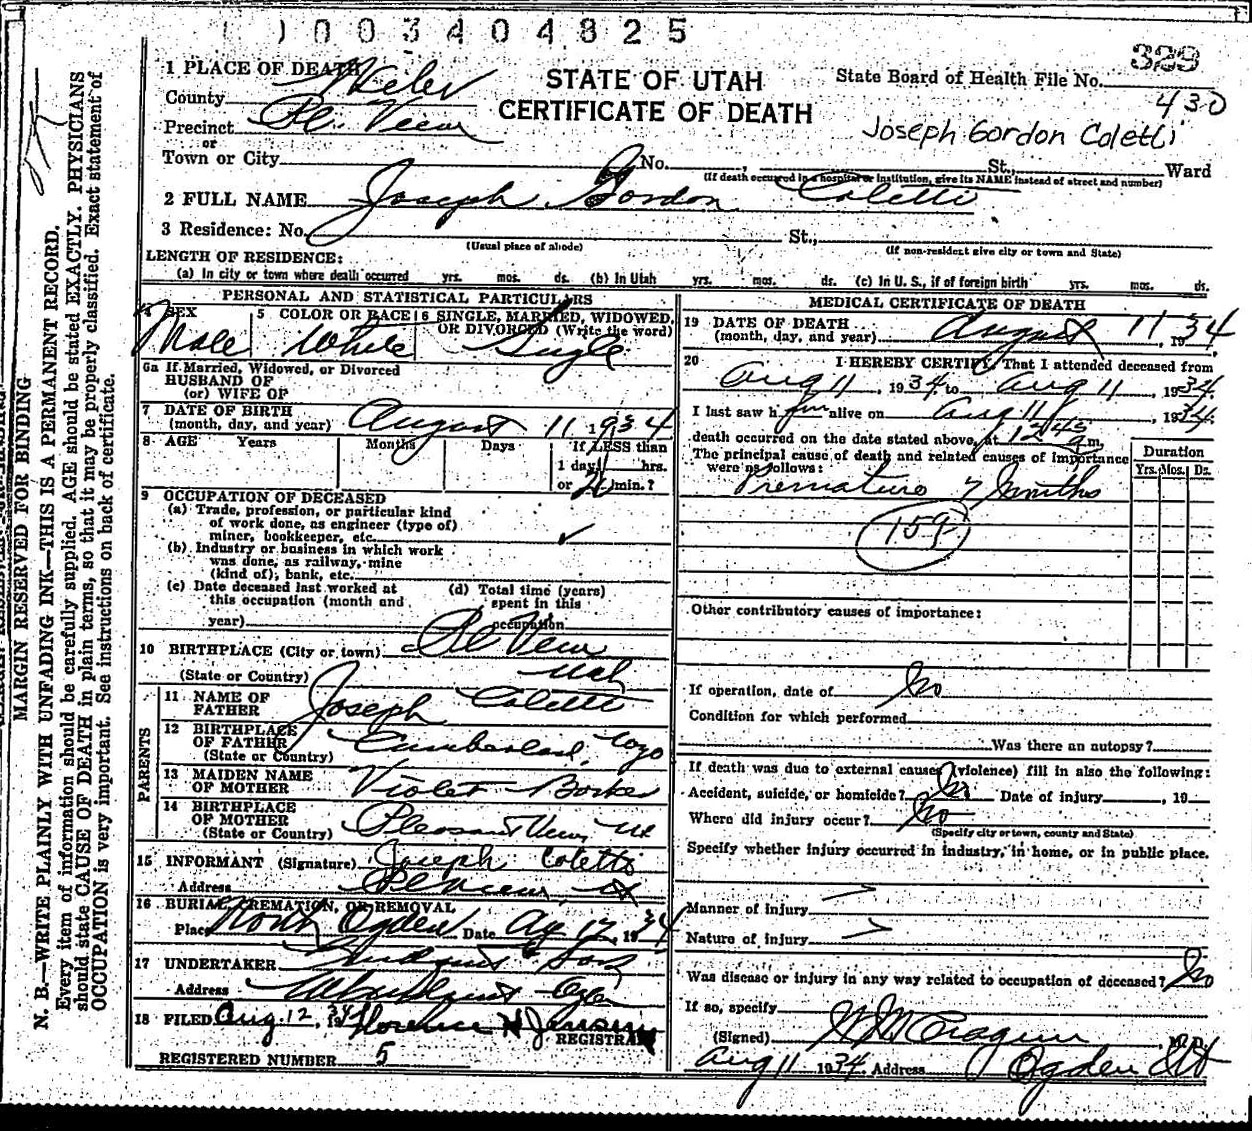 1003404825
329
430
1 PLACE OF DEATH
STATE OF UTAH
State Board of Health File No.
County Weber
CERTIFICATE OF DEATH
Precinct Pl. View
Joseph Gordon Coletti
or
Town or City No. , St., Ward
(If death occurred in a hospital or institution, give its NAME instead of street and number)
2 FULL NAME Joseph Gordon Coletti
3 Residence: No. St.,
(Usual place of abode) (If non-resident give city or town and State)
LENGTH OF RESIDENCE:
(a) In city or town where death occurred yrs. mos. ds. (b) In Utah yrs. mos. ds. (c) In U. S., if of foreign birth yrs. mos. ds.
PERSONAL AND STATISTICAL PARTICULARS
4 SEX Male
5 COLOR OR RACE White
6 SINGLE, MARRIED, WIDOWED, OR DIVORCED (Write the word) Single
6a If Married, Widowed, or Divorced
HUSBAND OF
(or) WIFE OF
7 DATE OF BIRTH
(month, day, and year) August 11 1934
8 AGE Years Months Days If LESS than
1 day hrs.
or min.?
9 OCCUPATION OF DECEASED
(a) Trade, profession, or particular kind
of work done, as engineer (type of)
miner, bookkeeper, etc. ✓
(b) Industry or business in which work
was done, as railway, mine
(kind of), bank, etc.
(c) Date deceased last worked at
this occupation (month and
year)
(d) Total time (years)
spent in this
occupation
10 BIRTHPLACE (City or town) Pl View
(State or Country) Utah
PARENTS
11 NAME OF
FATHER Joseph Coletti
12 BIRTHPLACE
OF FATHER
(State or Country) Cumberland, Wyo
13 MAIDEN NAME
OF MOTHER Violet
14 BIRTHPLACE
OF MOTHER
(State or Country) Pleasant View, Ut
15 INFORMANT (Signature) Joseph Coletti
Address Pl View, Ut
16 BURIAL, CREMATION, OR REMOVAL
Place North Ogden Date Aug 12, 1934
17 UNDERTAKER & Sons
Address Ogden
18 FILED Aug. 12, 1934 Florence H Jensen
REGISTRAR
REGISTERED NUMBER 5
MEDICAL CERTIFICATE OF DEATH
19 DATE OF DEATH
(month, day, and year) August 11, 1934
20 I HEREBY CERTIFY, That I attended deceased from
Aug 11, 1934 to Aug 11, 1934
I last saw him alive on Aug 11, 1934
death occurred on the date stated above, at 1245 a m.
The principal cause of death and related causes of importance
were as follows:
Duration
Yrs. Mos. Ds.
Premature 7 months
159
Other contributory causes of importance:
If operation, date of No
Condition for which performed
Was there an autopsy?
If death was due to external causes (violence) fill in also the following:
Accident, suicide, or homicide? No Date of injury , 19
Where did injury occur? No
(Specify city or town, county and State)
Specify whether injury occurred in industry, in home, or in public place.
Manner of injury
Nature of injury
Was disease or injury in any way related to occupation of deceased? No
If so, specify
(Signed) , M.D.
Aug 11 1934 Address Ogden Ut
MARGIN RESERVED FOR BINDING
N. B.—WRITE PLAINLY WITH UNFADING INK—THIS IS A PERMANENT RECORD.
Every item of information should be carefully supplied. AGE should be stated EXACTLY. PHYSICIANS
should state CAUSE OF DEATH in plain terms, so that it may be properly classified. Exact statement of
OCCUPATION is very important. See instructions on back of certificate.